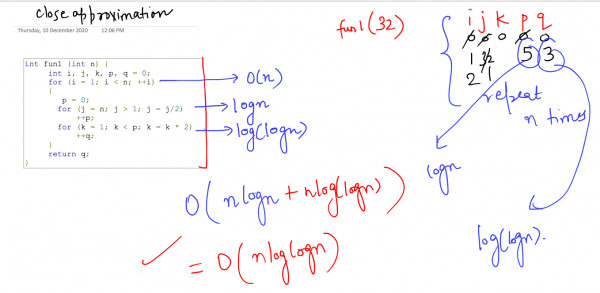 close approximation
Thursday, 10 December 2020 12:06 PM
fun1(32)
i j k p q
0 0 0 0 0
1 32 5 3
2 1
repeat
n times
int fun1 (int n) {
int i, j, k, p, q = 0;
for (i = 1; i < n; ++i) → O(n)
{
p = 0;
for (j = n; j > 1; j = j/2) → logn
++p;
for (k = 1; k < p; k = k * 2) → log(logn)
++q;
}
return q;
}
logn
log(logn).
O(nlogn + nlog(logn))
= O(nlog(logn))